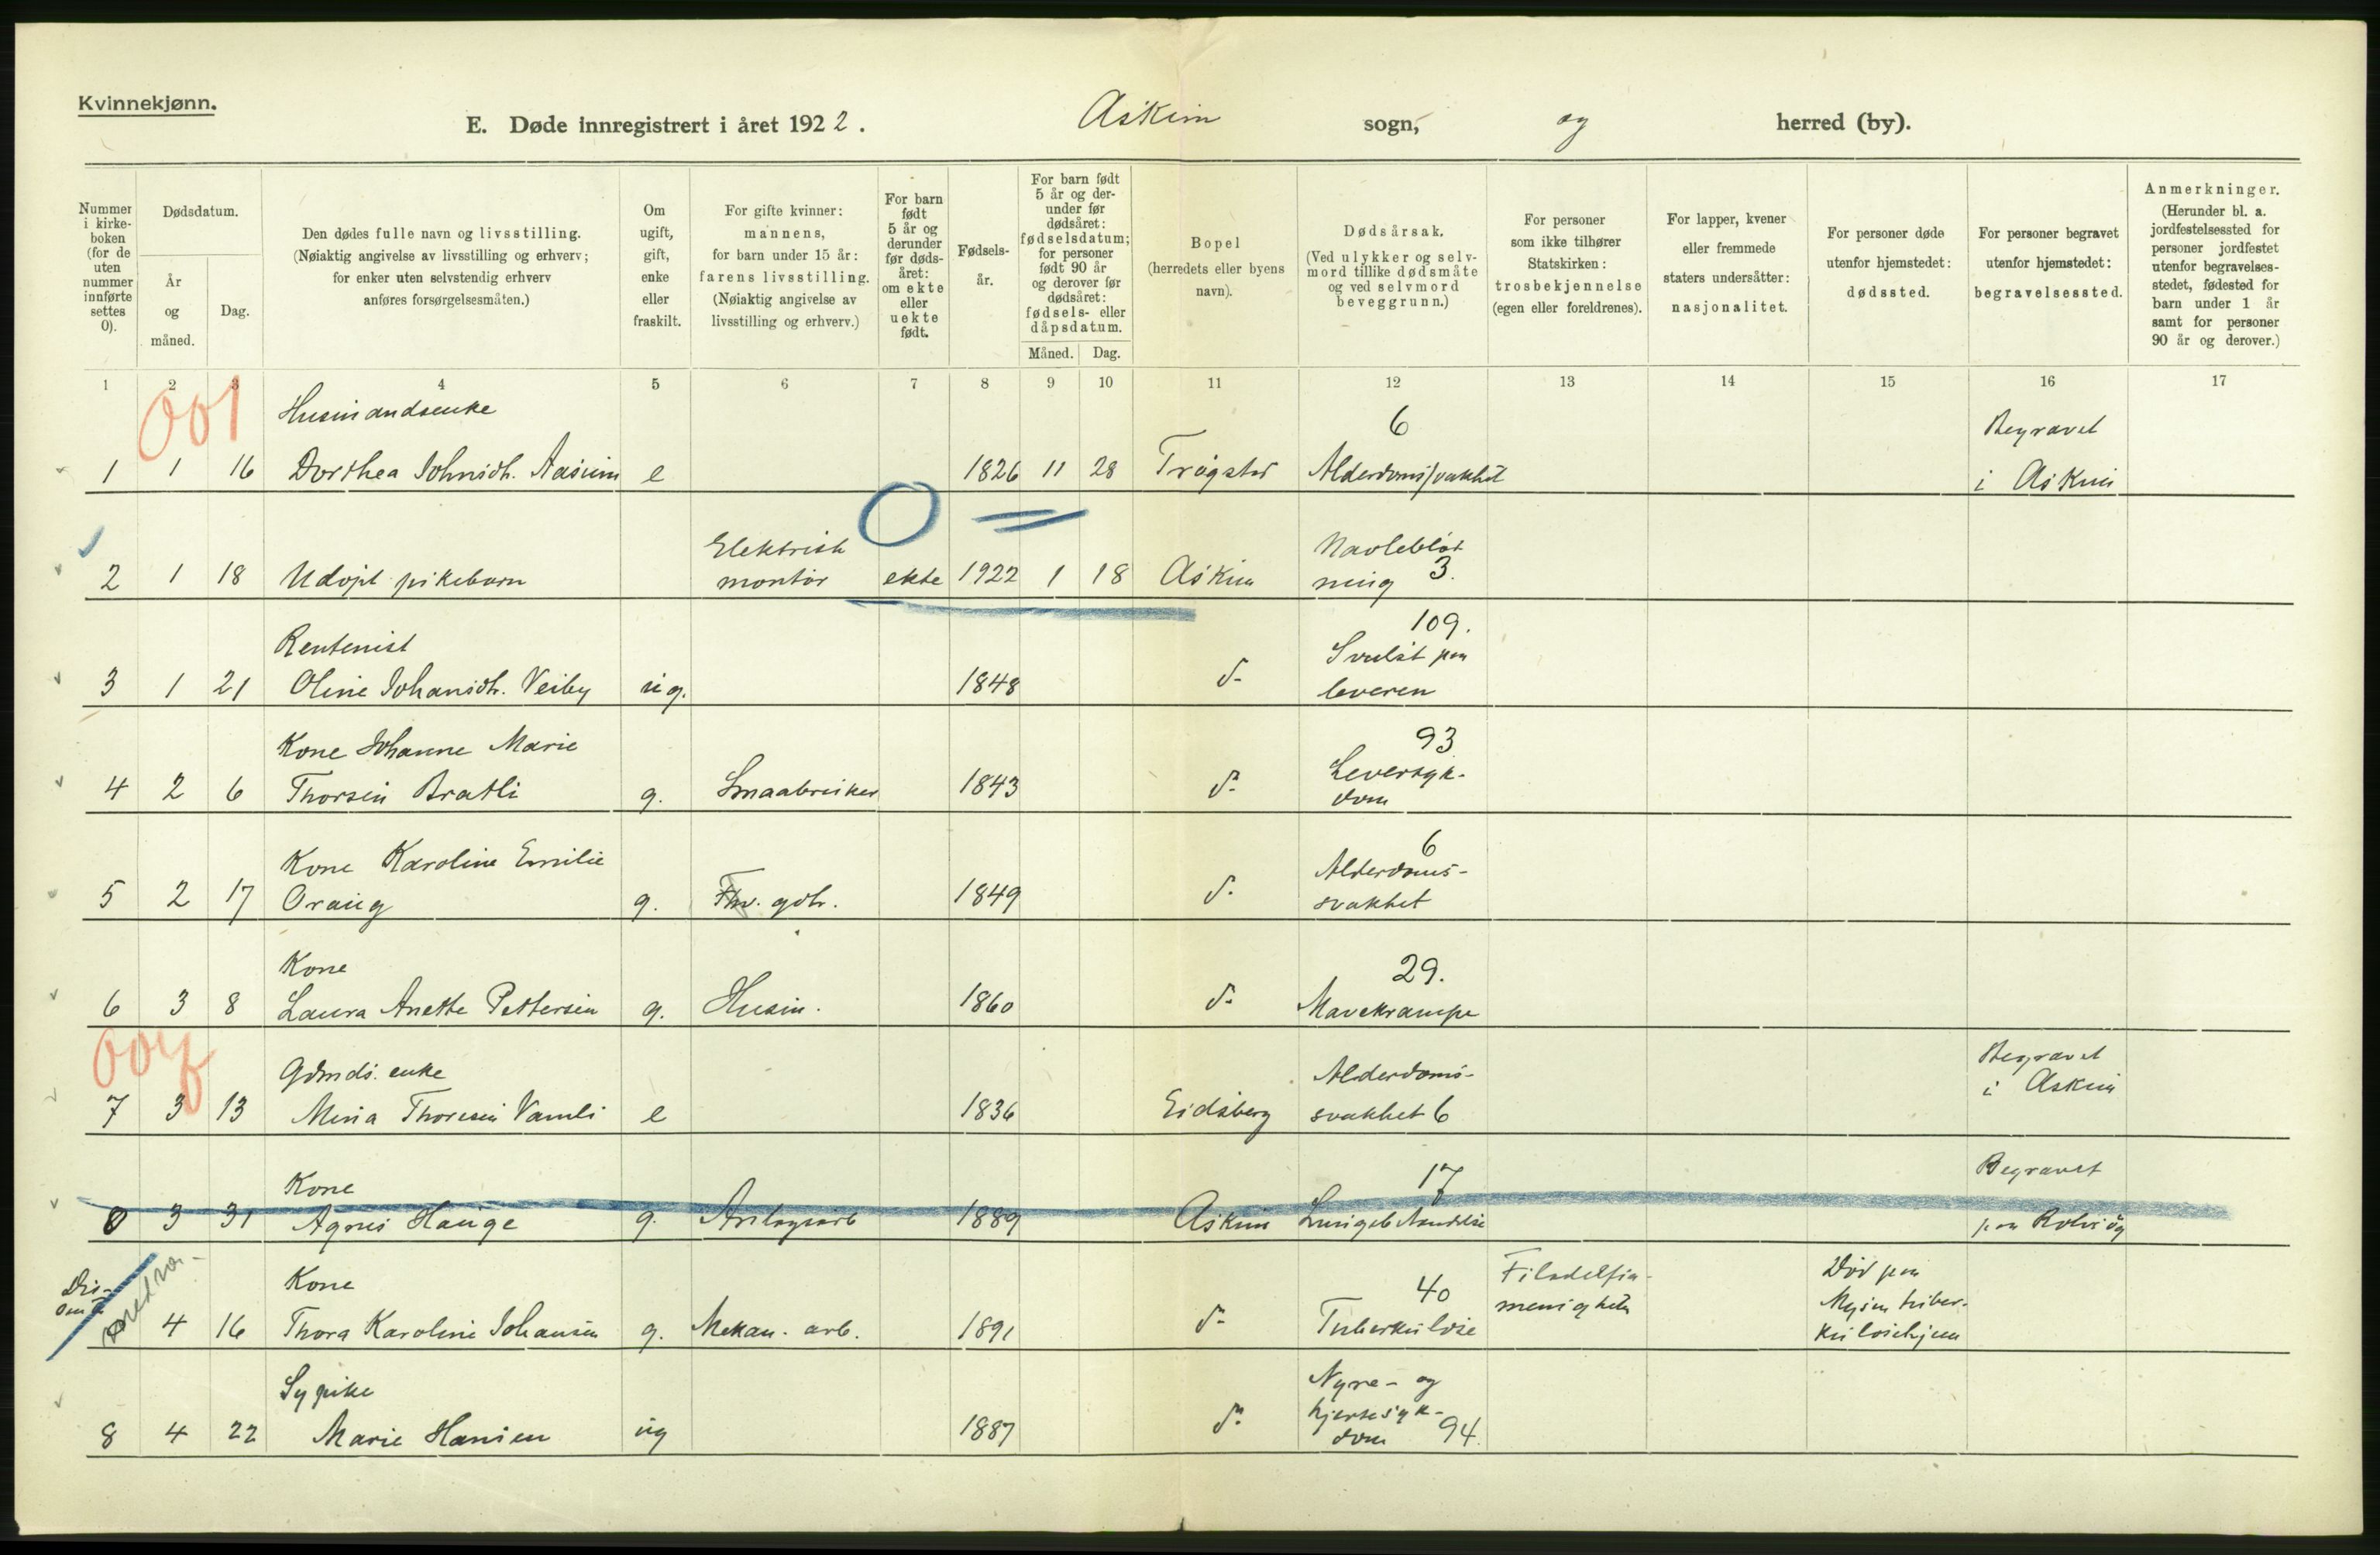 Kvinnekjønn.
E. Døde innregistrert i året 1922. Askim sogn, og herred (by).
Nummer i kirkeboken (for de uten nummer innførte settes 0).
Dødsdatum.
År og måned.
Dag.
Den dødes fulle navn og livsstilling.
(Nøiaktig angivelse av livsstilling og erhverv;
for enker uten selvstendig erhverv
anføres forsørgelsesmåten.)
Om ugift, gift, enke eller fraskilt.
For gifte kvinner:
mannens,
for barn under 15 år:
farens livsstilling.
(Nøiaktig angivelse av
livsstilling og erhverv.)
For barn født 5 år og derunder før dødsåret: om ekte eller uekte født.
Fødselsår.
For barn født 5 år og derunder før dødsåret: fødselsdatum; for personer født 90 år og derover før dødsåret: fødsels- eller dåpsdatum.
Måned. Dag.
Bopel
(herredets eller byens
navn).
Dødsårsak.
(Ved ulykker og selvmord tillike dødsmåte
og ved selvmord
beveggrunn.)
For personer
som ikke tilhører
Statskirken:
trosbekjennelse
(egen eller foreldrenes).
For lapper, kvener
eller fremmede
staters undersåtter:
nasjonalitet.
For personer døde
utenfor hjemstedet:
dødssted.
For personer begravet
utenfor hjemstedet:
begravelsessted.
Anmerkninger.
(Herunder bl. a.
jordfestelsessted for
personer jordfestet
utenfor begravelses-
stedet, fødested for
barn under 1 år
samt for personer
90 år og derover.)
1 2 3 4 5 6 7 8 9 10 11 12 13 14 15 16 17
001 Husmandsenke 6 Begravet
1 1 16 Dorthea Johnsdh. Aasum e 1826 11 28 Trøgstad Alderdomssvakhet i Askim
Elektrisk Navleblød-
2 1 18 Udøpt pikebarn montør ekte 1922 1 18 Askim ning 3.
109.
Rentenist Svulst paa
3 1 21 Oline Johansdh. Veiby ug. 1848 do leveren
93
Kone Johanne Marie Leversyk-
4 2 6 Thorsen Bratli g. Smaabruker 1843 do dom
6
Kone Karoline Emilie Alderdoms-
5 2 17 Oraug g. Fhv. gdbr. 1849 do svakhet
Kone 29.
6 3 8 Laura Anette Pettersen g. Husm. 1860 do Mavekrampe
004 Gdmds. enke Alderdoms- Begravet
7 3 13 Mina Thoresen Vamli e 1836 Eidsberg svakhet 6 i Askim
Kone 17 Begravet
0 3 31 Agnes Hauge g. Anlegsarb 1889 Askim Lungebetændelse paa Rolvsøy
Kone 40 Filadelfia- Død paa
menigheten Mysen tuber-
4 16 Thora Karoline Johansen g. Mekan. arb. 1891 do Tuberkulose kulosehjem
Sypike Nyre- og
hjertesyk-
8 4 22 Marie Hansen ug 1887 do dom 94.